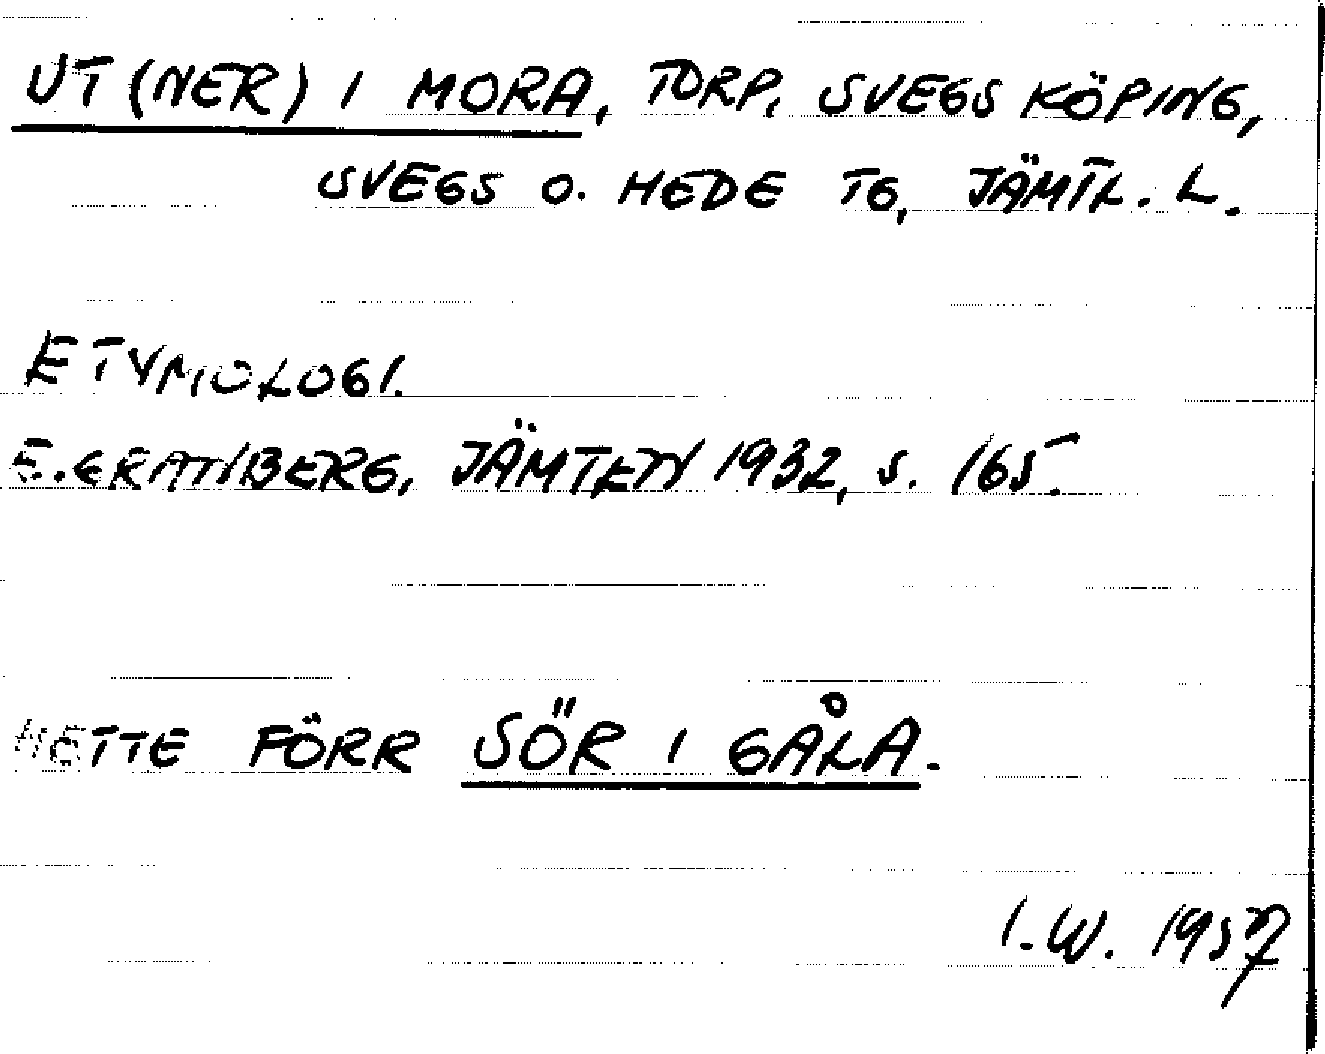 UT (NER) I MORA, TORP, SVEGS KÖPING,
SVEGS O. HEDE TG, JÄMTL. L.
ETYMOLOGI.
E. GRANBERG, JÄMTEN 1932, S. 165.
HETTE FÖRR SÖR I GÅLA.
I.W. 1957